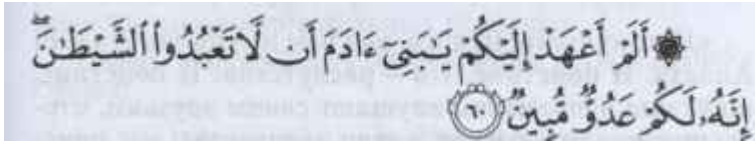 ۞ أَلَمْ أَعْهَدْ إِلَيْكُمْ يَـٰبَنِىٓ ءَادَمَ أَن لَّا تَعْبُدُوا۟ ٱلشَّيْطَـٰنَ ۖ
إِنَّهُۥ لَكُمْ عَدُوٌّ مُّبِينٌ ۝٦٠